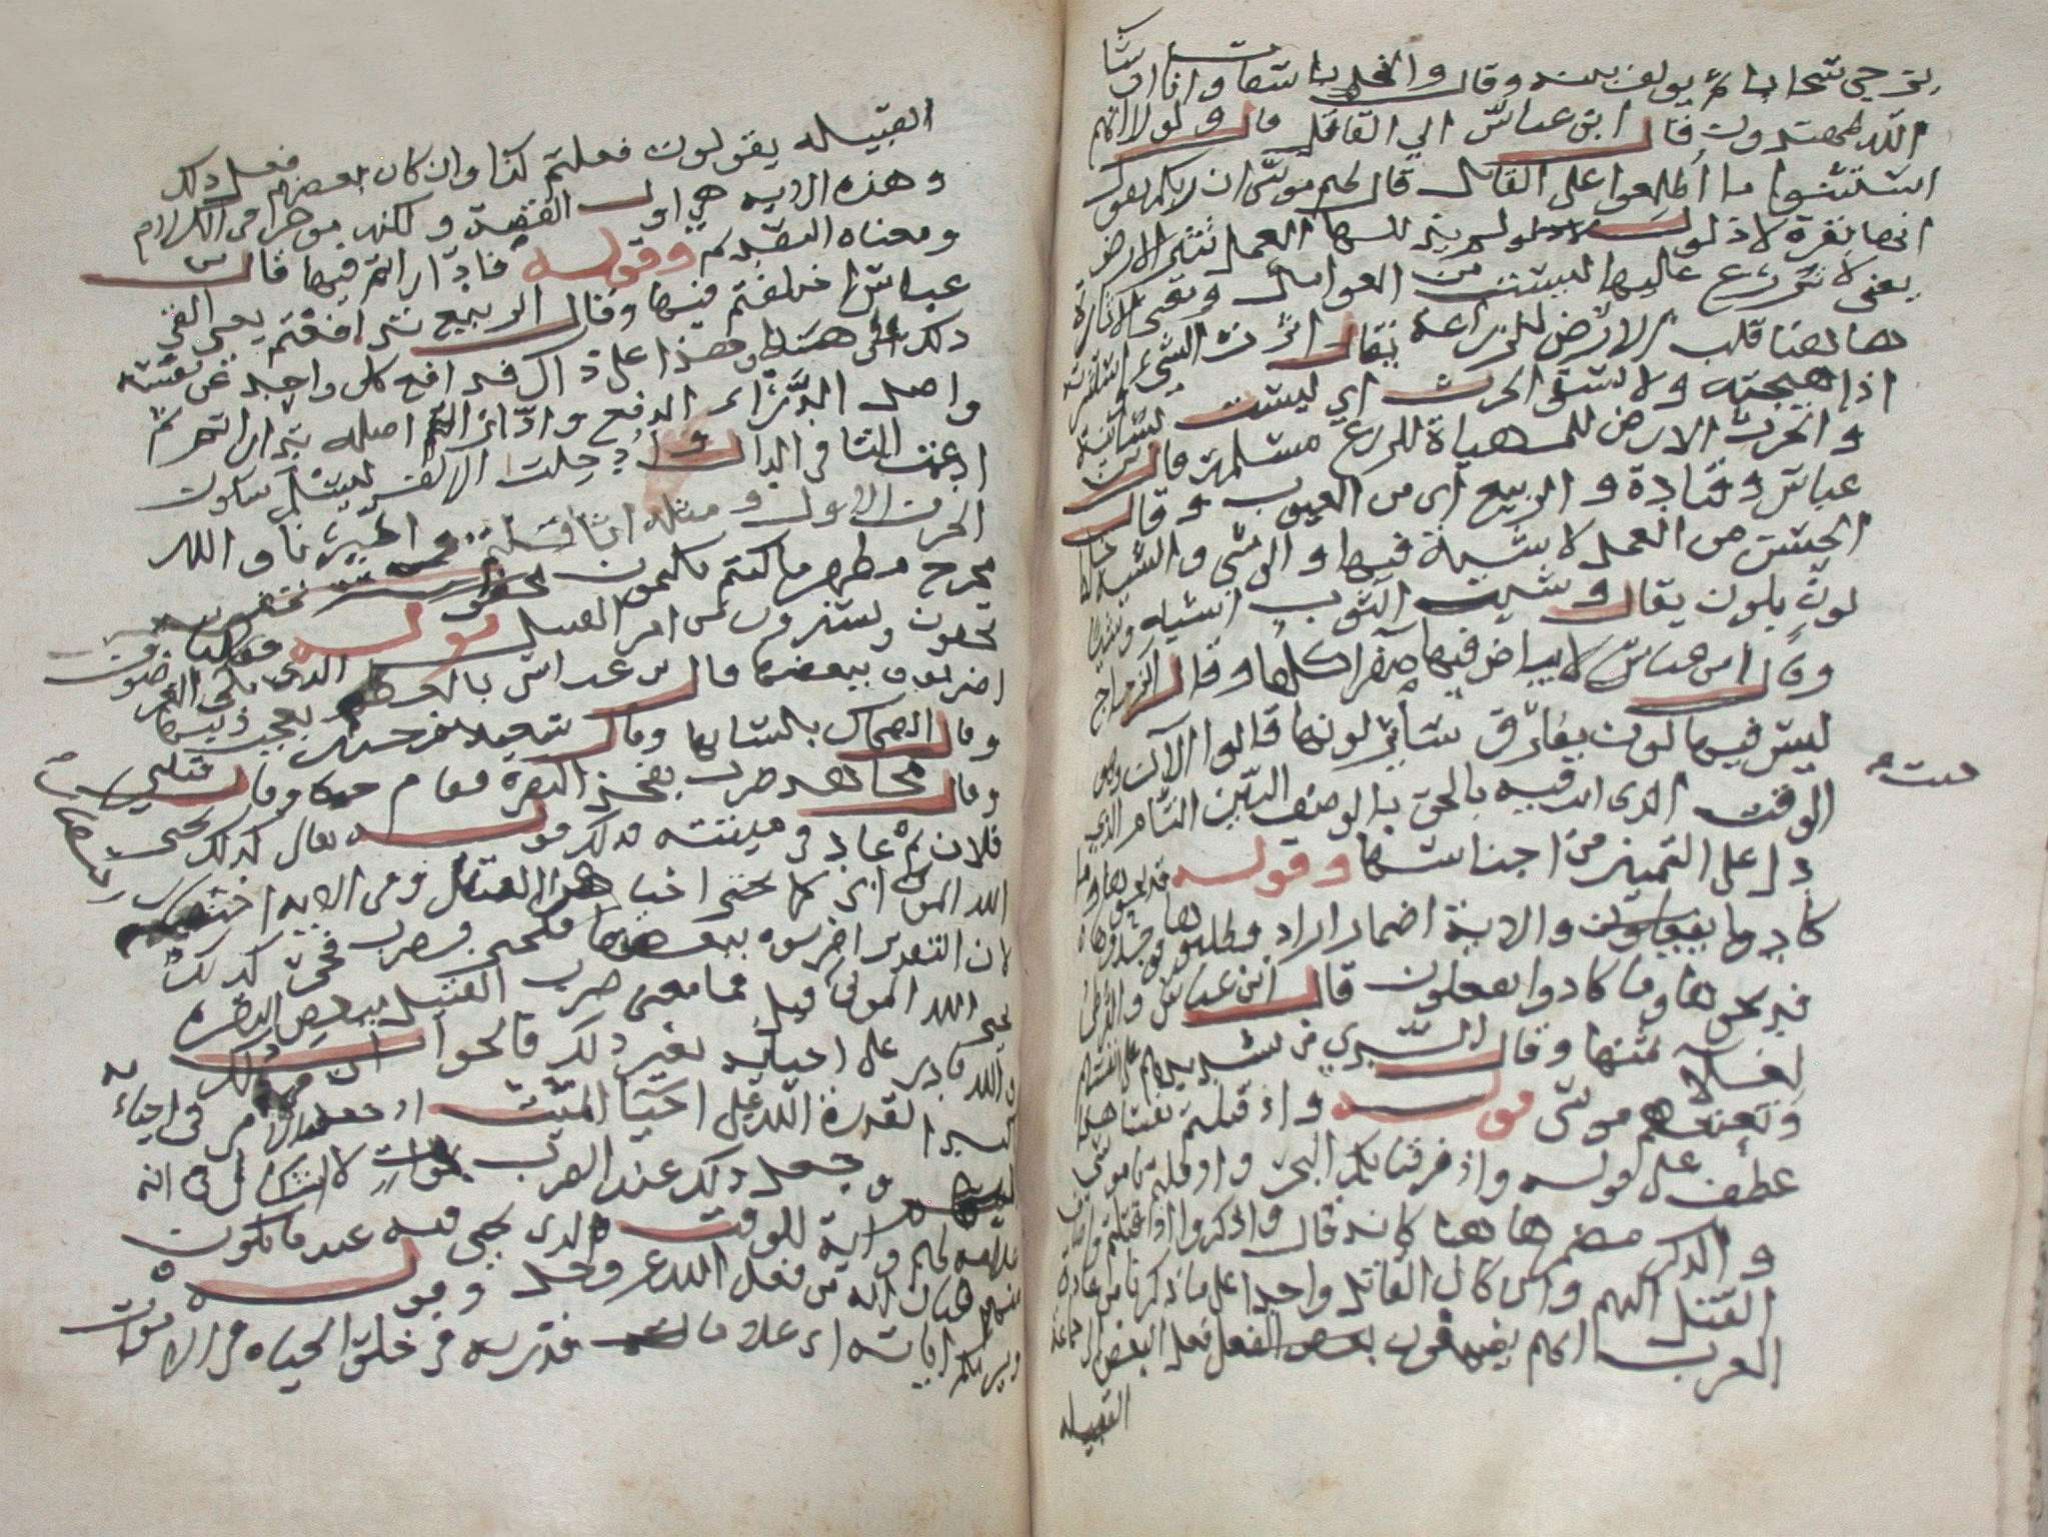 يزجي سحابا ثم يولف بينه وقال والنخل باسقات وانا ان شا
الله لمهتدون قال ابن عباس الي القاتل قال ولولا انهم
استثنوا ما اطلعوا على القاتل قال لهم موسى ان ربكم يقول
انها بقرة لا ذلول لم يذللها العمل تثير الارض
يعنى لا يزرع عليها ليست من العوامل ومعنى الاثارة
هاهنا قلب الارض للزراعة يقال اثرت الشي واستثرته
اذا هيجته ولا تسقي الحرث اي ليست بسانية
والحرث الارض المهياة للزرع مسلمة قال ابن
عباس وقتادة والربيع اى من العيوب وقال
الحسن من العمل لا شية فيها والوشي والشية خلط
لون بلون يقال وشيت الثوب اشيه وشيا
وقال ابن عباس لا بياض فيها صفرا كلها وقال الزجاج
ليس فيها لون يفارق سائر لونها قالوا الآن وهو
الوقت الذى انت فيه بالحق بالوصف البين التام الذي
دل على التمييز من اجناسها وقوله فذبحوها وما
كادوا يفعلون والاية اضمار اراد فطلبوها فوجدوها
فذبحوها وما كادوا يفعلون قال ابن عباس والقرظي
لغلاء ثمنها وقال السدي من تشديدهم على انفسهم
وتعنتهم موسى قوله واذ قتلتم نفسا هذا
عطف على قوله واذ فرقنا بكم البحر واذ قلتم يا موسى
والذكر مضمر هاهنا كانه قال واذكروا اذ قتلتم واضاف
القتل اليهم وان كان القاتل واحدا على ما ذكرنا من عادة
العرب انهم يضيفون فعل البعض الى جماعة
القبيله
سته
القبيله يقولون فعلتم كذا وان كان بعضهم فعل ذلك
وهذه الايه هي اول القصة ولكنه موخرا فى الكلام
ومعناه التقديم وقوله فادّاراتم فيها قال ابن
عباس اختلفتم فيها وقال الربيع تدافعتم يعنى القى
ذلك على هذا وهذا على ذاك فدافع كل واحد عن نفسه
واصل الدَّرْا الدفع وادّاراتم اصله تداراتم ثم
ادغمت التا فى الدال وادخلت الالف ليسلم سكون
الحرف الاول ومثله اثاقلتم والله
مخرج مظهر ما كنتم تكتمون
تخفون وتسترون من امر القتيل قوله فقلنا
اضربوه ببعضها قال ابن عباس بالعظم الذى يلى الغضروف
وقال الضحاك بلسانها وقال سعيد بن جبير بعجب ذنبها
وقال مجاهد ضرب بفخذ البقرة فقام حيا وقال قتلني
فلان ثم عاد فى ميتته فذلك قوله تعالى كذلك يحيى
الله الموتى اى كما احيا هذا القتيل وفى الاية اختصار
لان التقدير اضربوه ببعضها فيحيى فضرب فحيى كذلك
يحيى الله الموتى قيل فما معنى ضرب القتيل ببعض البقره
والله قادر على احيايه بغير ذلك فالجواب ان فى ذلك
لقدرة الله على احيا الميت
وجعل ذلك عند الضرب
واية للوقت الذى يحيى فيه عند ما يكون
من فعل الله عز وجل وقوله
ويريكم اياته اى علامات قدرته فى خلق الحياه فى الاموات